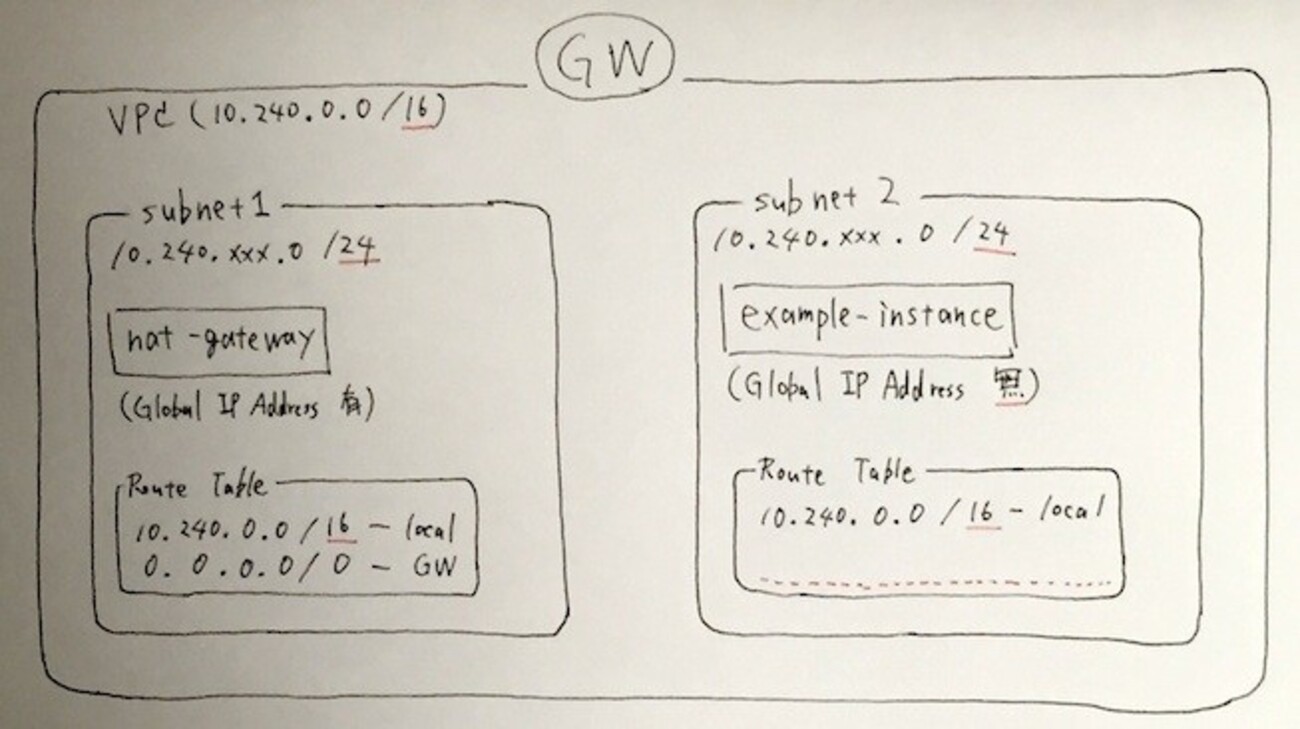 GW
VPC (10.240.0.0/16)
subnet1
10.240.xxx.0 /24
nat-gateway
(Global IP Address 有)
Route Table
10.240.0.0/16 - local
0.0.0.0/0 - GW
subnet 2
10.240.xxx.0 /24
example-instance
(Global IP Address 無)
Route Table
10.240.0.0/16 - local